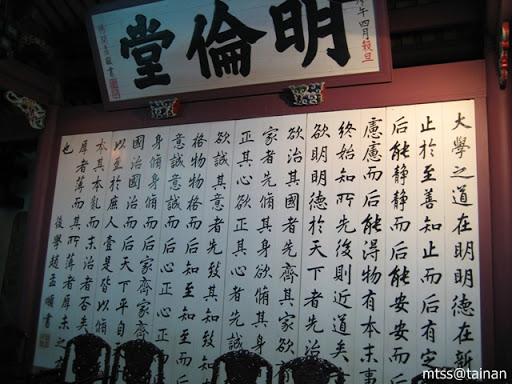 明倫堂
午四月穀旦
大學之道在明明德在新
止於至善知止而后有定
后能靜靜而后能安安而
慮慮而后能得物有本末事
終始知所先後則近道矣
欲明明德於天下者先
欲治其國者先齊其家欲
家者先脩其身欲脩其
正其心欲正其心者先
欲誠其意者先致其知致
格物物格而后知至知至而
意誠意誠而后心正心正
身脩身脩而后家齊家齊
國治國治而后天下平自
以至於庶人壹是皆以脩
本其本亂而末治者否矣
厚者薄而其所薄者厚未之
也
後學趙孟頫書
mtss@tainan